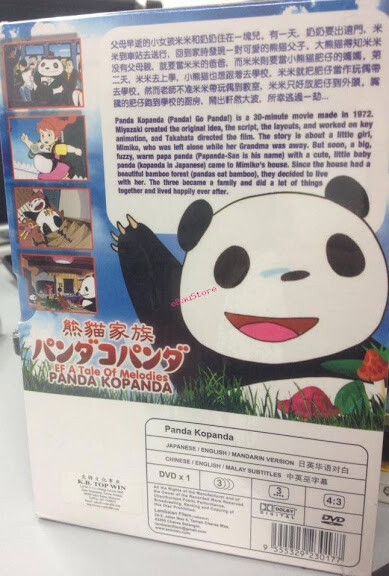 父母早逝的小女孩米米和奶奶住在一塊兒，有一天，奶奶要出遠門，米
米到車站去送行，回到家時發現一對可愛的熊貓父子，大熊貓得知米米
沒有父母親，就要當米米的爸爸，而米米則要當小熊貓肥仔的媽媽，第
二天，米米去上學，小熊貓也想跟着去學校，米米就把肥仔當作玩偶帶
去學校，然而老師不准米米帶玩偶到教室，米米只好放肥仔到外頭，
肥仔跑到學校的廚房，鬧出軒然大波，所幸逃過一劫...
Panda Kopanda (Panda! Go Panda!) is a 30-minute movie made in 1972.
Miyazaki created the original idea, the script, the layouts, and worked on key
animation, and Takahata directed the film. The story is about a little girl,
Mimiko, who was left alone while her Grandma was away. But soon, a big,
fuzzy, warm papa panda (Papanda-San is his name) with a cute, little baby
panda (kopanda in Japanese) came to Mimiko's house. Since the house had a
beautiful bamboo forest (pandas eat bamboo), they decided to live
with her. The three became a family and did a lot of things
together and lived happily ever after.
eBauStore
熊貓家族
パンダコパンダ
EF A Tale Of Melodies
PANDA KOPANDA
K.B. TOP WIN
Panda Kopanda
JAPANESE / ENGLISH / MANDARIN VERSION 日英华语对白
CHINESE / ENGLISH / MALAY SUBTITLES 中英巫字幕
DVD x 1
3
3
4:3
All the Rights of the Manufacturer and of
the Owner of the Recorded Area Reserved
Unauthorised Public Performance,
Broadcasting, Renting and Copying of
this Disc Prohibited.
DOLBY
DIGITAL
DVD
9 555329 230177